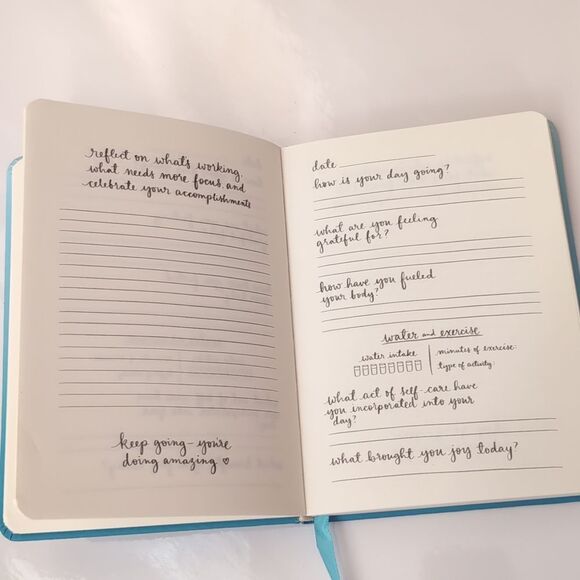 reflect on what's working,
what needs more focus, and
celebrate your accomplishments
keep going - you're
doing amazing ♡
date
how is your day going?
what are you feeling
grateful for?
how have you fueled
your body?
water and exercise
water intake
minutes of exercise:
type of activity:
what act of self-care have
you incorporated into your
day?
what brought you joy today?